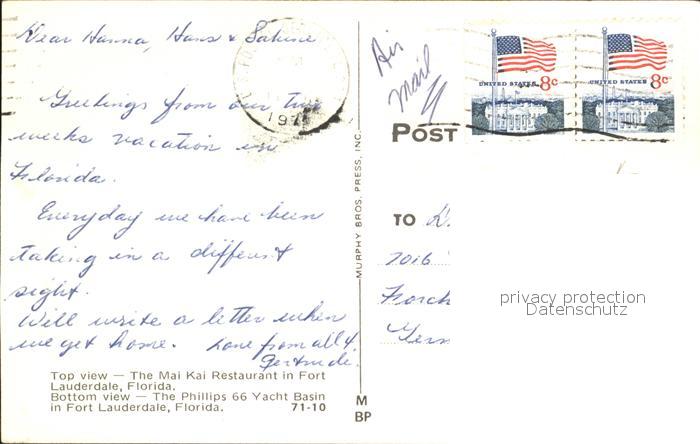 Dear Hanna, Hans & Sabine
Greetings from our two
weeks vacation in
Florida.
Everyday we have been
taking in a different
sight.
Will write a letter when
we get home. Love from all 4
Gertrude.
Top view — The Mai Kai Restaurant in Fort
Lauderdale, Florida.
Bottom view — The Phillips 66 Yacht Basin
in Fort Lauderdale, Florida. 71-10
MURPHY BROS. PRESS, INC.
M
BP
197
Air
Mail
UNITED STATES 8c
UNITED STATES 8c
POST
TO
7016
Forch
Germ
privacy protection
Datenschutz